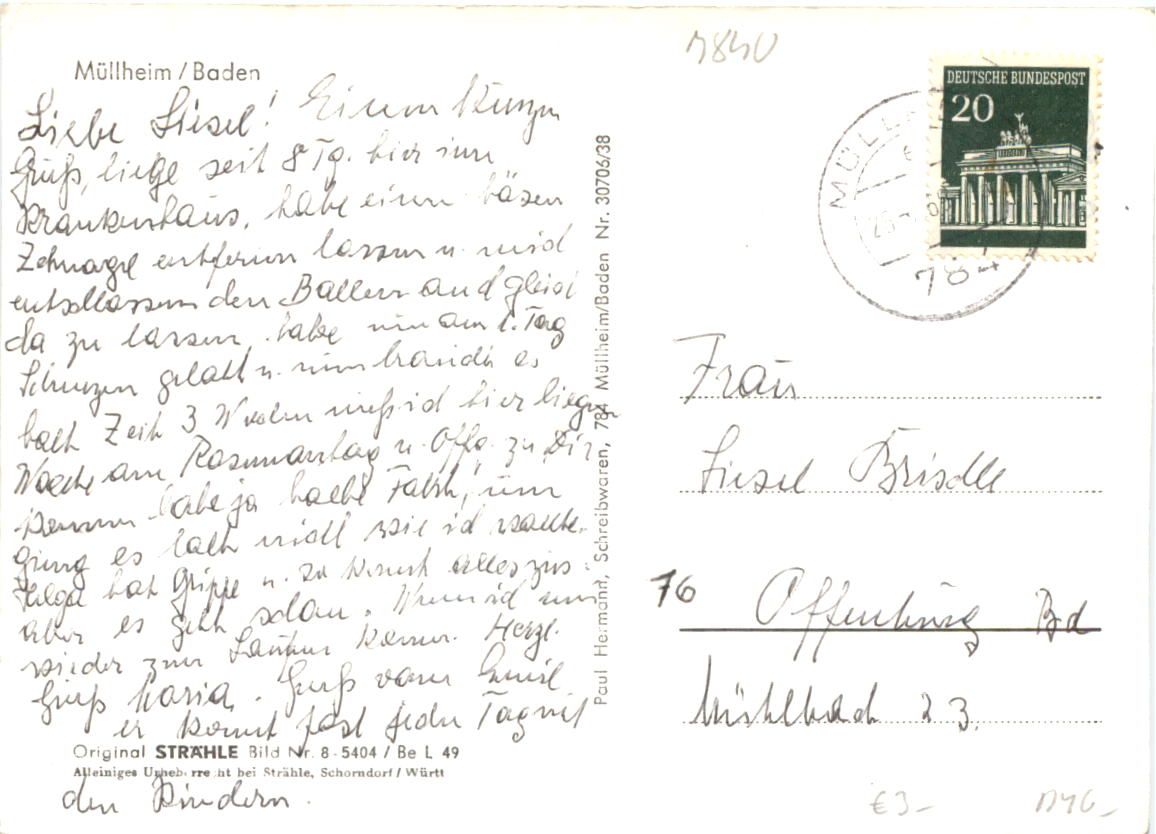 Müllheim / Baden
Liebe Liesel! Einen kurzen
Gruß, liege seit 8 Tg. hier im
Krankenhaus, habe einen bösen
Zehnagel entfernen lassen u. mich
entschlossen den Ballen auch gleich
da zu lassen, habe nur am 1. Tag
Schmerzen gehabt u. nun braucht es
halt Zeit 3 Wochen muß ich hier liegen
am Rosenmontag n. Offg. zu Dir
kommen habe ja halbe Fahrk, nun
ging es halt nicht wie ich wollte.
Helga hat Grippe u. so kommt alles zus.
aber es geht schon. Wenn ich nur
wieder zum Laufen komm. Herzl.
Gruß Maria. Gruß vom Emil
er kommt fast jeden Tag mit
den Kindern.
Original STRÄHLE Bild Nr. 8-5404 / Be L 49
Alleiniges Urheberrecht bei Strähle, Schorndorf / Württ
Paul Hermann, Schreibwaren, 784 Müllheim/Baden Nr. 30706/38
7840
DEUTSCHE BUNDESPOST
20
MÜLL
784
Frau
Liesel Brischle
76 Offenburg Bd
Mühlbach 23.
€3-